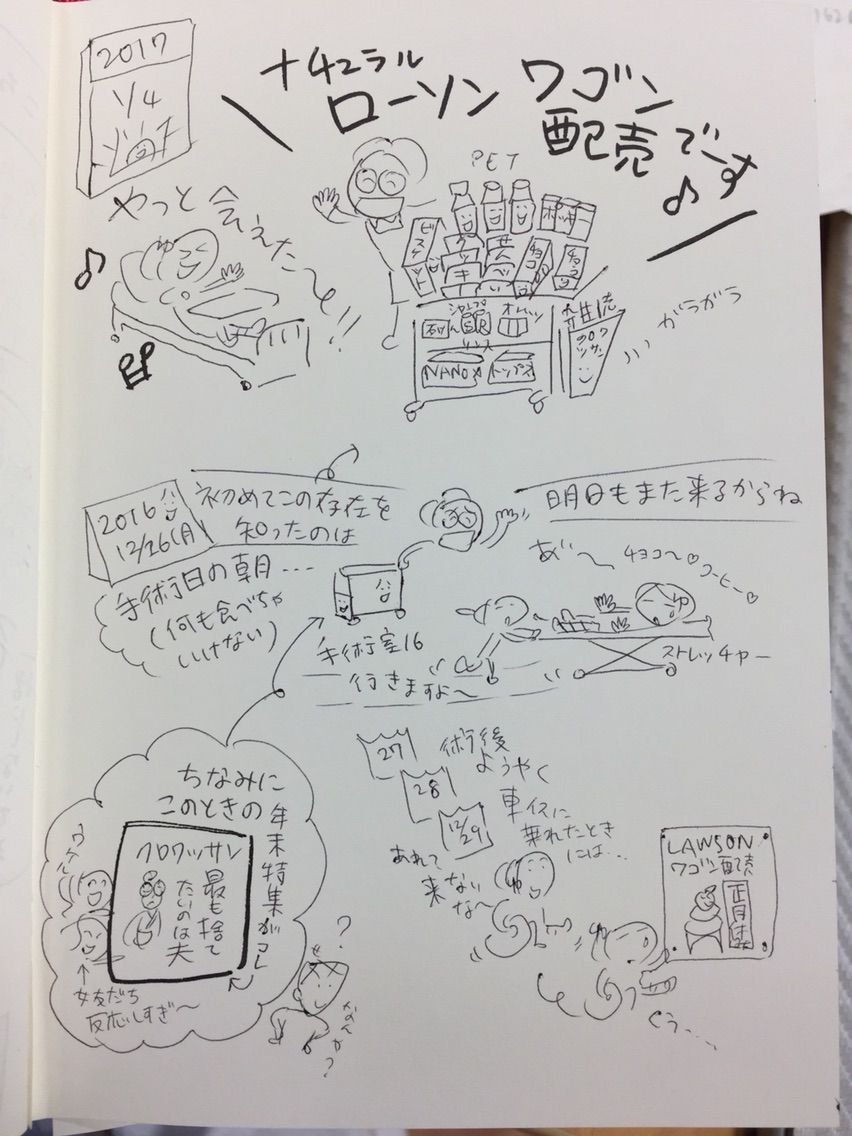 2017
1/4
ナチュラル
ローソン ワゴン
配売でーす♪
やっと会えたーよ!!
PET
ビスケット
クッキー
せんべい
チョコ
チョコ
ポッキー
シャンプー
オムツ
石けん
S
R
リンス
NANOX
トップス
クロワッサン
ガラガラ
2016
12/26(月)
初めてこの存在を
知ったのは
手術日の朝…
(何も食べちゃ
いけない)
明日もまた来るからね
あ゛〜 チョコ〜♡コーヒー♡
手術室16
行きますよ〜
ストレッチャー
27
28
12/29
術後
ようやく
車イスに
乗れたとき
には…
あれて
来ない
な〜
LAWSON
ワゴン配売
正月休
くぅ……
ちなみに
このときの
年末特集がコレ
クロワッサン
最も捨て
たいのは夫
ウケル
女友だち
反応しすぎ〜
?
なんか?